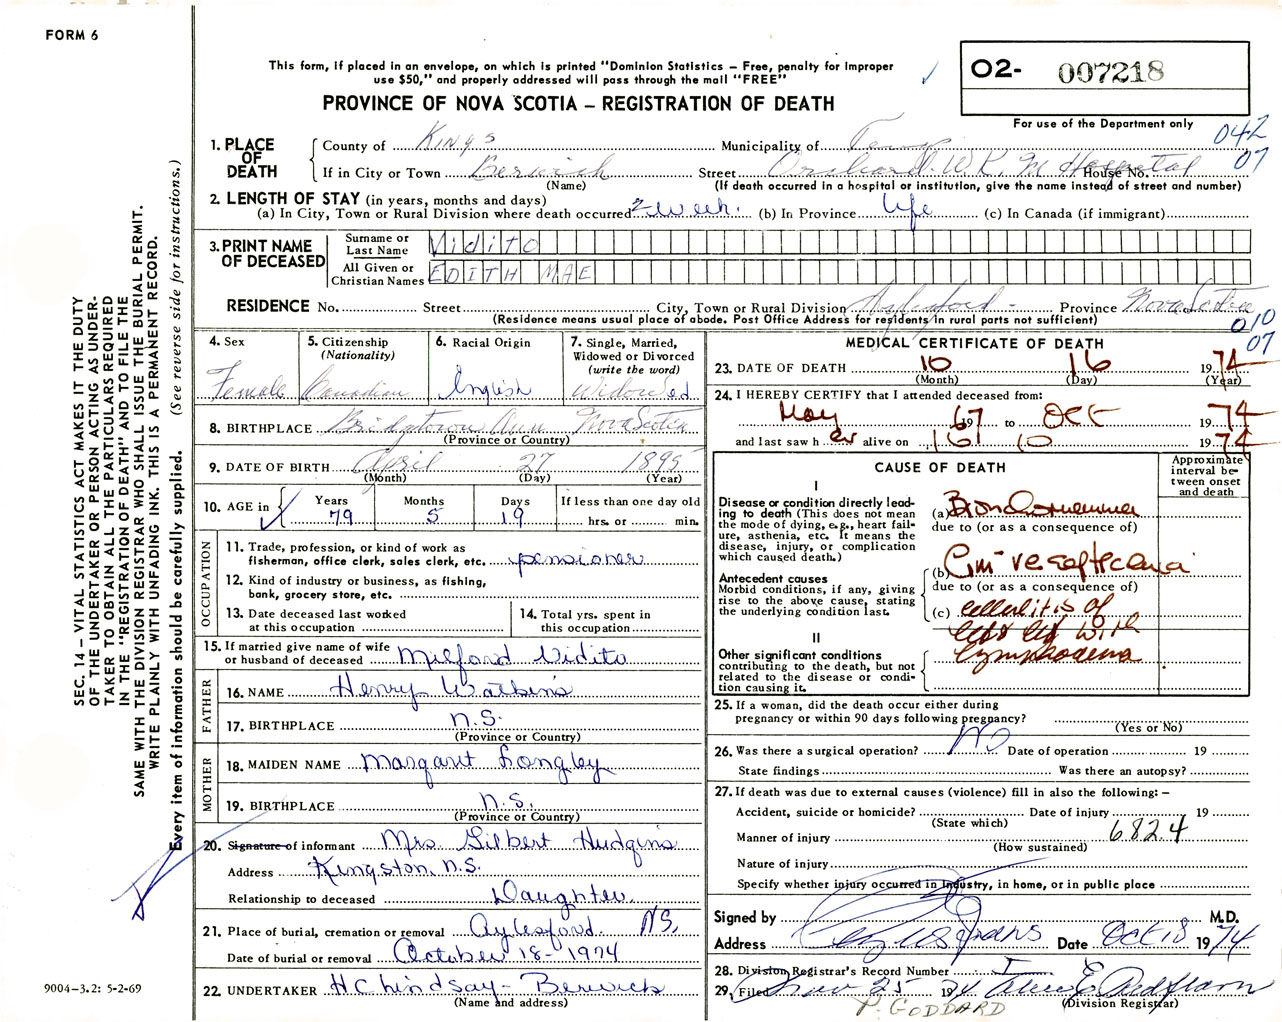 FORM 6
This form, if placed in an envelope, on which is printed "Dominion Statistics – Free, penalty for improper
use $50," and properly addressed will pass through the mail "FREE"
PROVINCE OF NOVA SCOTIA – REGISTRATION OF DEATH
O2- 007218
For use of the Department only
042
07
1. PLACE OF DEATH
County of Kings Municipality of
If in City or Town Berwick Street Orchard. W. K. M Hospital House No.
(Name) (If death occurred in a hospital or institution, give the name instead of street and number)
2. LENGTH OF STAY (in years, months and days)
(a) In City, Town or Rural Division where death occurred 2 week. (b) In Province life (c) In Canada (if immigrant)
3. PRINT NAME OF DECEASED
Surname or Last Name Vidito
All Given or Christian Names EDITH MAE
RESIDENCE No. Street City, Town or Rural Division Aylesford - Province Nova Scotia
(Residence means usual place of abode. Post Office Address for residents in rural parts not sufficient)
010
07
4. Sex Female
5. Citizenship (Nationality) Canadian
6. Racial Origin English
7. Single, Married, Widowed or Divorced (write the word) Widowed
8. BIRTHPLACE Bridgetown Ann Nova Scotia
(Province or Country)
9. DATE OF BIRTH April 27 1895
(Month) (Day) (Year)
10. AGE in Years 79 Months 5 Days 19 If less than one day old hrs. or min.
OCCUPATION
11. Trade, profession, or kind of work as fisherman, office clerk, sales clerk, etc. pensioner
12. Kind of industry or business, as fishing, bank, grocery store, etc.
13. Date deceased last worked at this occupation
14. Total yrs. spent in this occupation
15. If married give name of wife or husband of deceased Milford Vidito
FATHER
16. NAME Henry Watkins
17. BIRTHPLACE N.S.
(Province or Country)
MOTHER
18. MAIDEN NAME Margaret Longley
19. BIRTHPLACE N.S.
(Province or Country)
20. Signature of informant Mrs. Gilbert Hudgins
Address Kingston, N.S.
Relationship to deceased Daughter.
21. Place of burial, cremation or removal Aylesford. N.S.
Date of burial or removal October 18 - 1974
22. UNDERTAKER H C Lindsay - Berwick
(Name and address)
MEDICAL CERTIFICATE OF DEATH
23. DATE OF DEATH 10 16 1974
(Month) (Day) (Year)
24. I HEREBY CERTIFY that I attended deceased from:
May 1967 to Oct 1974
and last saw her alive on 16 10 1974
CAUSE OF DEATH
Approximate interval between onset and death
I
Disease or condition directly leading to death (This does not mean the mode of dying, e.g., heart failure, asthenia, etc. It means the disease, injury, or complication which caused death.)
(a) Bronchopneumonia
due to (or as a consequence of)
Antecedent causes
Morbid conditions, if any, giving rise to the above cause, stating the underlying condition last.
(b) Gm -ve septicemia
due to (or as a consequence of)
(c) cellulitis of
left leg with
lymphodema
II
Other significant conditions contributing to the death, but not related to the disease or condition causing it.
25. If a woman, did the death occur either during pregnancy or within 90 days following pregnancy?
(Yes or No)
26. Was there a surgical operation? No Date of operation 19
State findings Was there an autopsy?
27. If death was due to external causes (violence) fill in also the following: –
Accident, suicide or homicide? Date of injury 19
(State which)
Manner of injury 682.4
(How sustained)
Nature of injury
Specify whether injury occurred in industry, in home, or in public place
Signed by M.D.
Address Date Oct 18 1974
28. Division Registrar's Record Number
29. Filed Nov 25 1974
(Division Registrar)
P. GODDARD
SEC. 14 – VITAL STATISTICS ACT MAKES IT THE DUTY
OF THE UNDERTAKER OR PERSON ACTING AS UNDER-
TAKER TO OBTAIN ALL THE PARTICULARS REQUIRED
IN THE "REGISTRATION OF DEATH" AND TO FILE THE
SAME WITH THE DIVISION REGISTRAR WHO SHALL ISSUE THE BURIAL PERMIT.
WRITE PLAINLY WITH UNFADING INK. THIS IS A PERMANENT RECORD.
Every item of information should be carefully supplied. (See reverse side for instructions.)
9004-3.2: 5-2-69